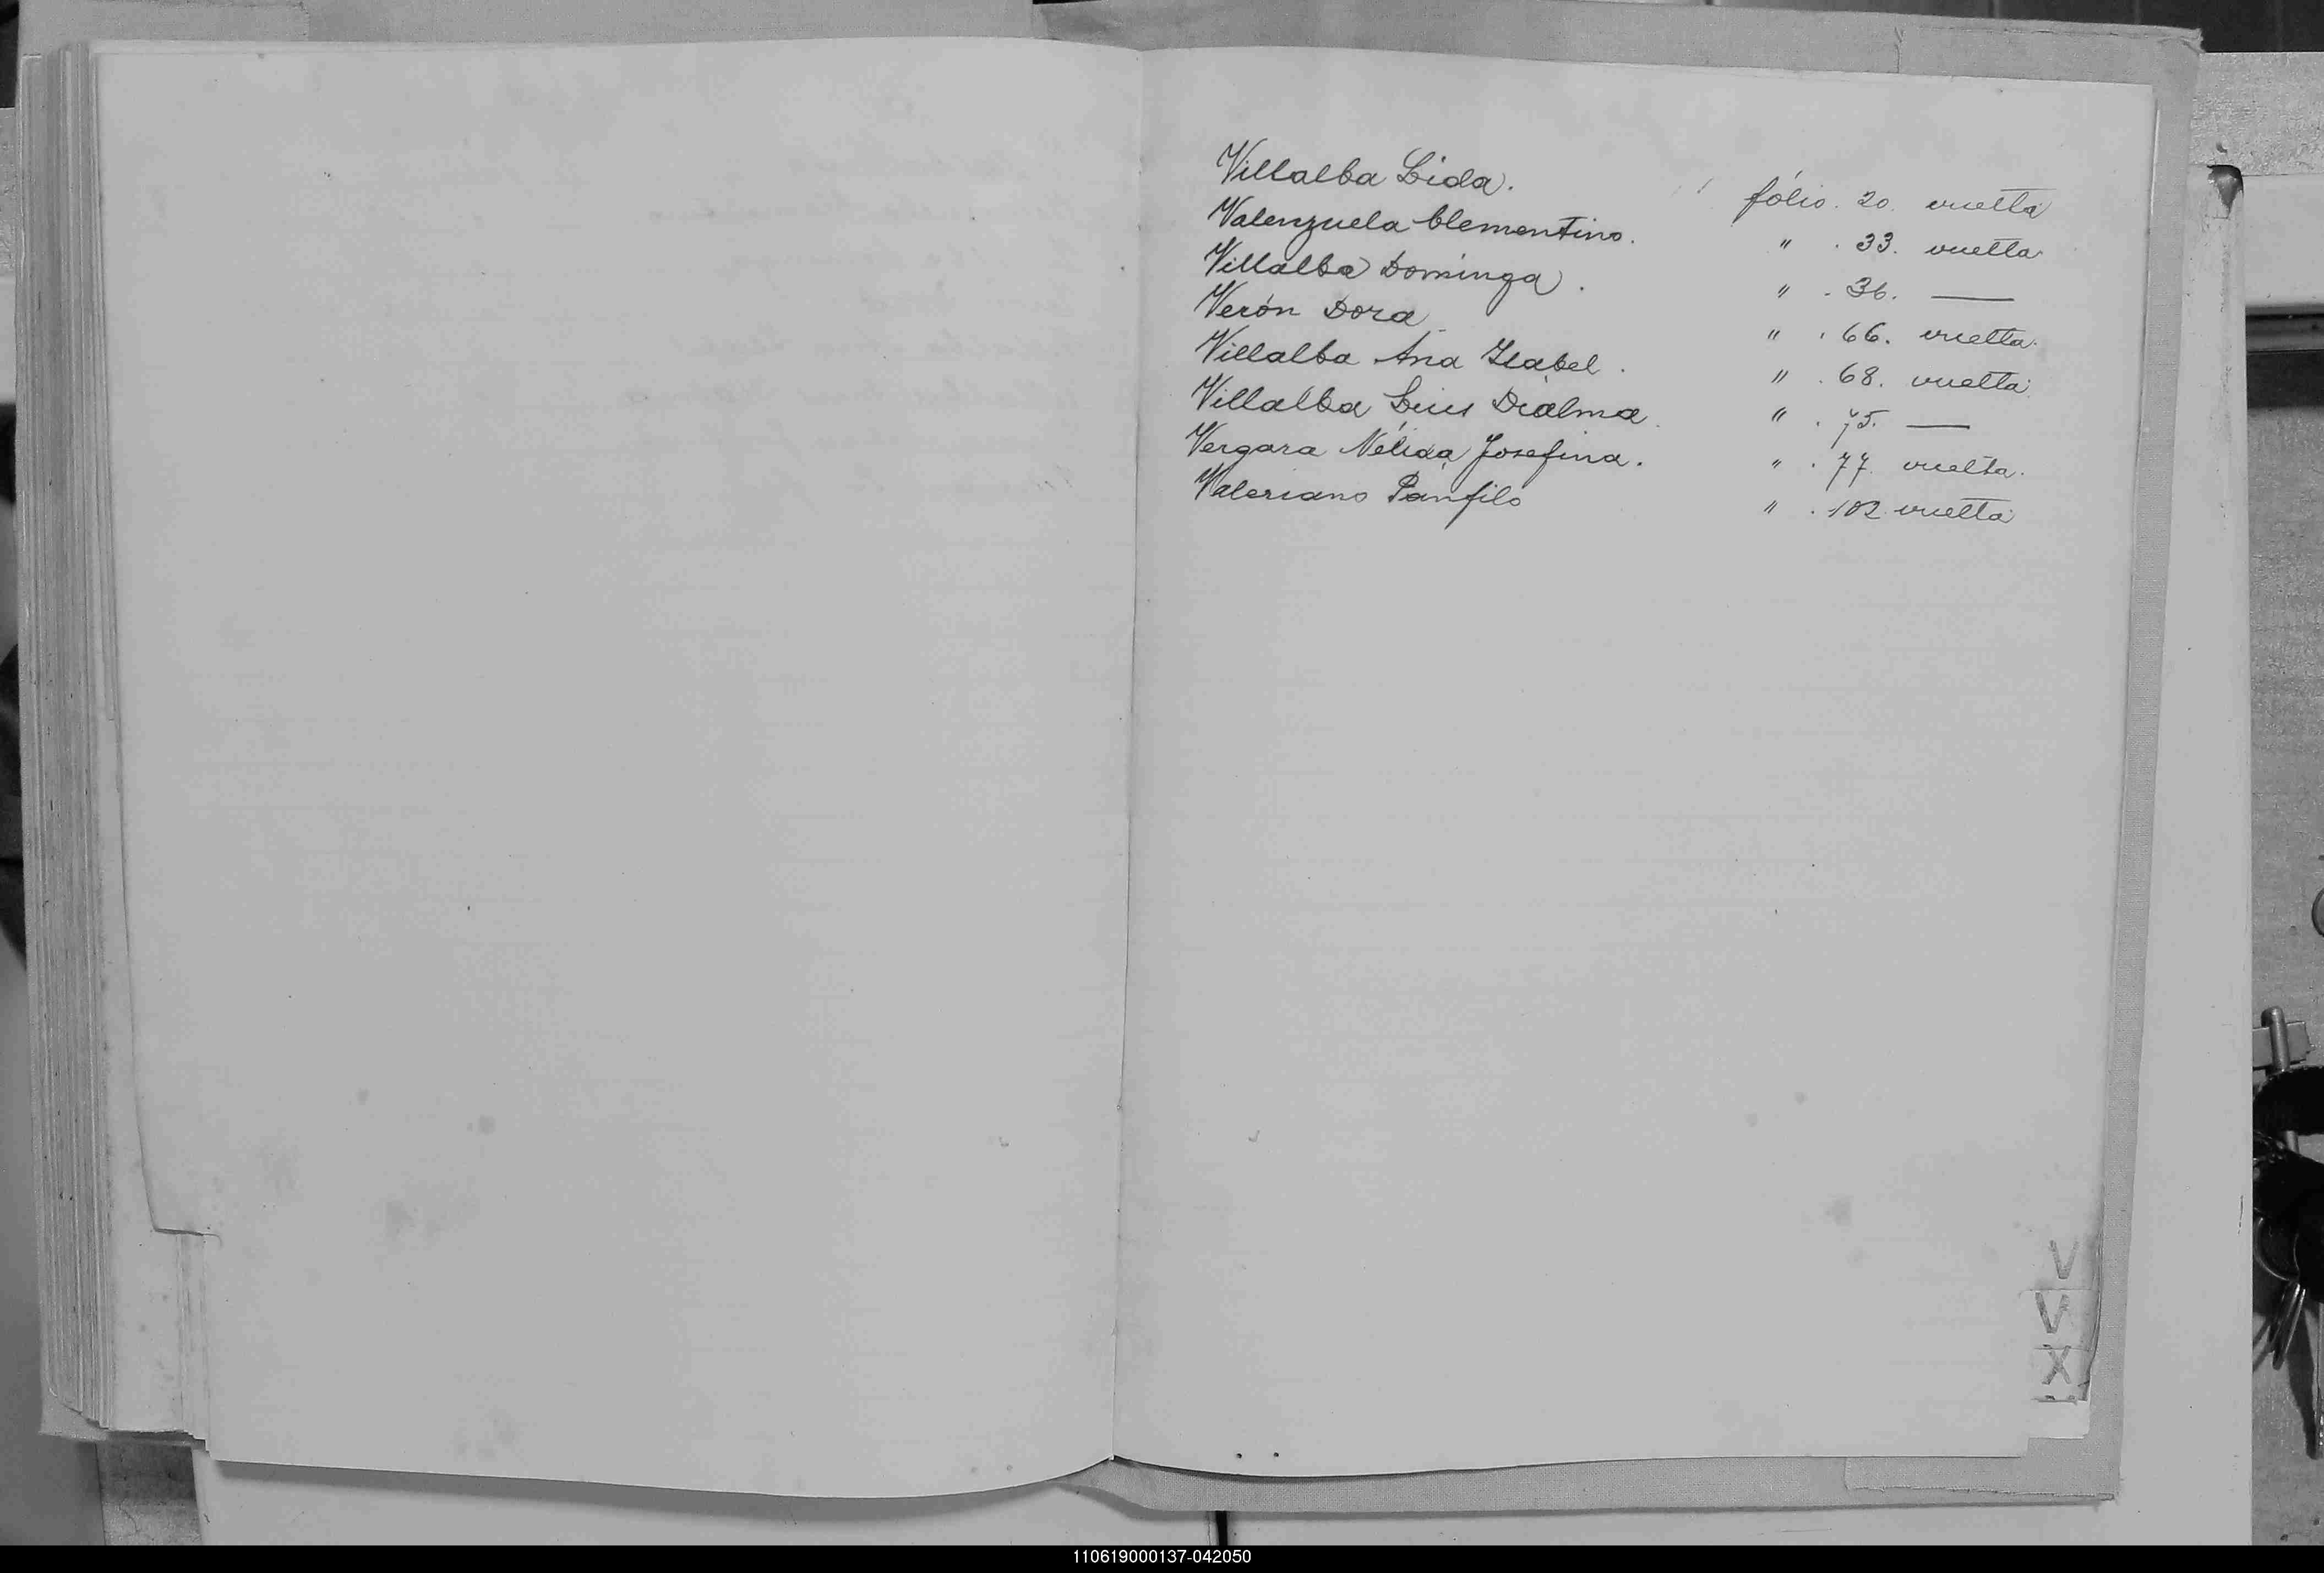 Villalba Lida. fólio. 20. vuelta
Valenzuela Clementino. " . 33. vuelta
Villalba Dominga . " . 36. —
Verón Dora " . 66. vuelta.
Villalba Ana Isabel . " . 68. vuelta
Villalba Luis Dialma. " . 75. —
Vergara Nélida Josefina. " . 77. vuelta.
Valeriano Panfilo " . 102 vuelta
V
V
X
110619000137-042050